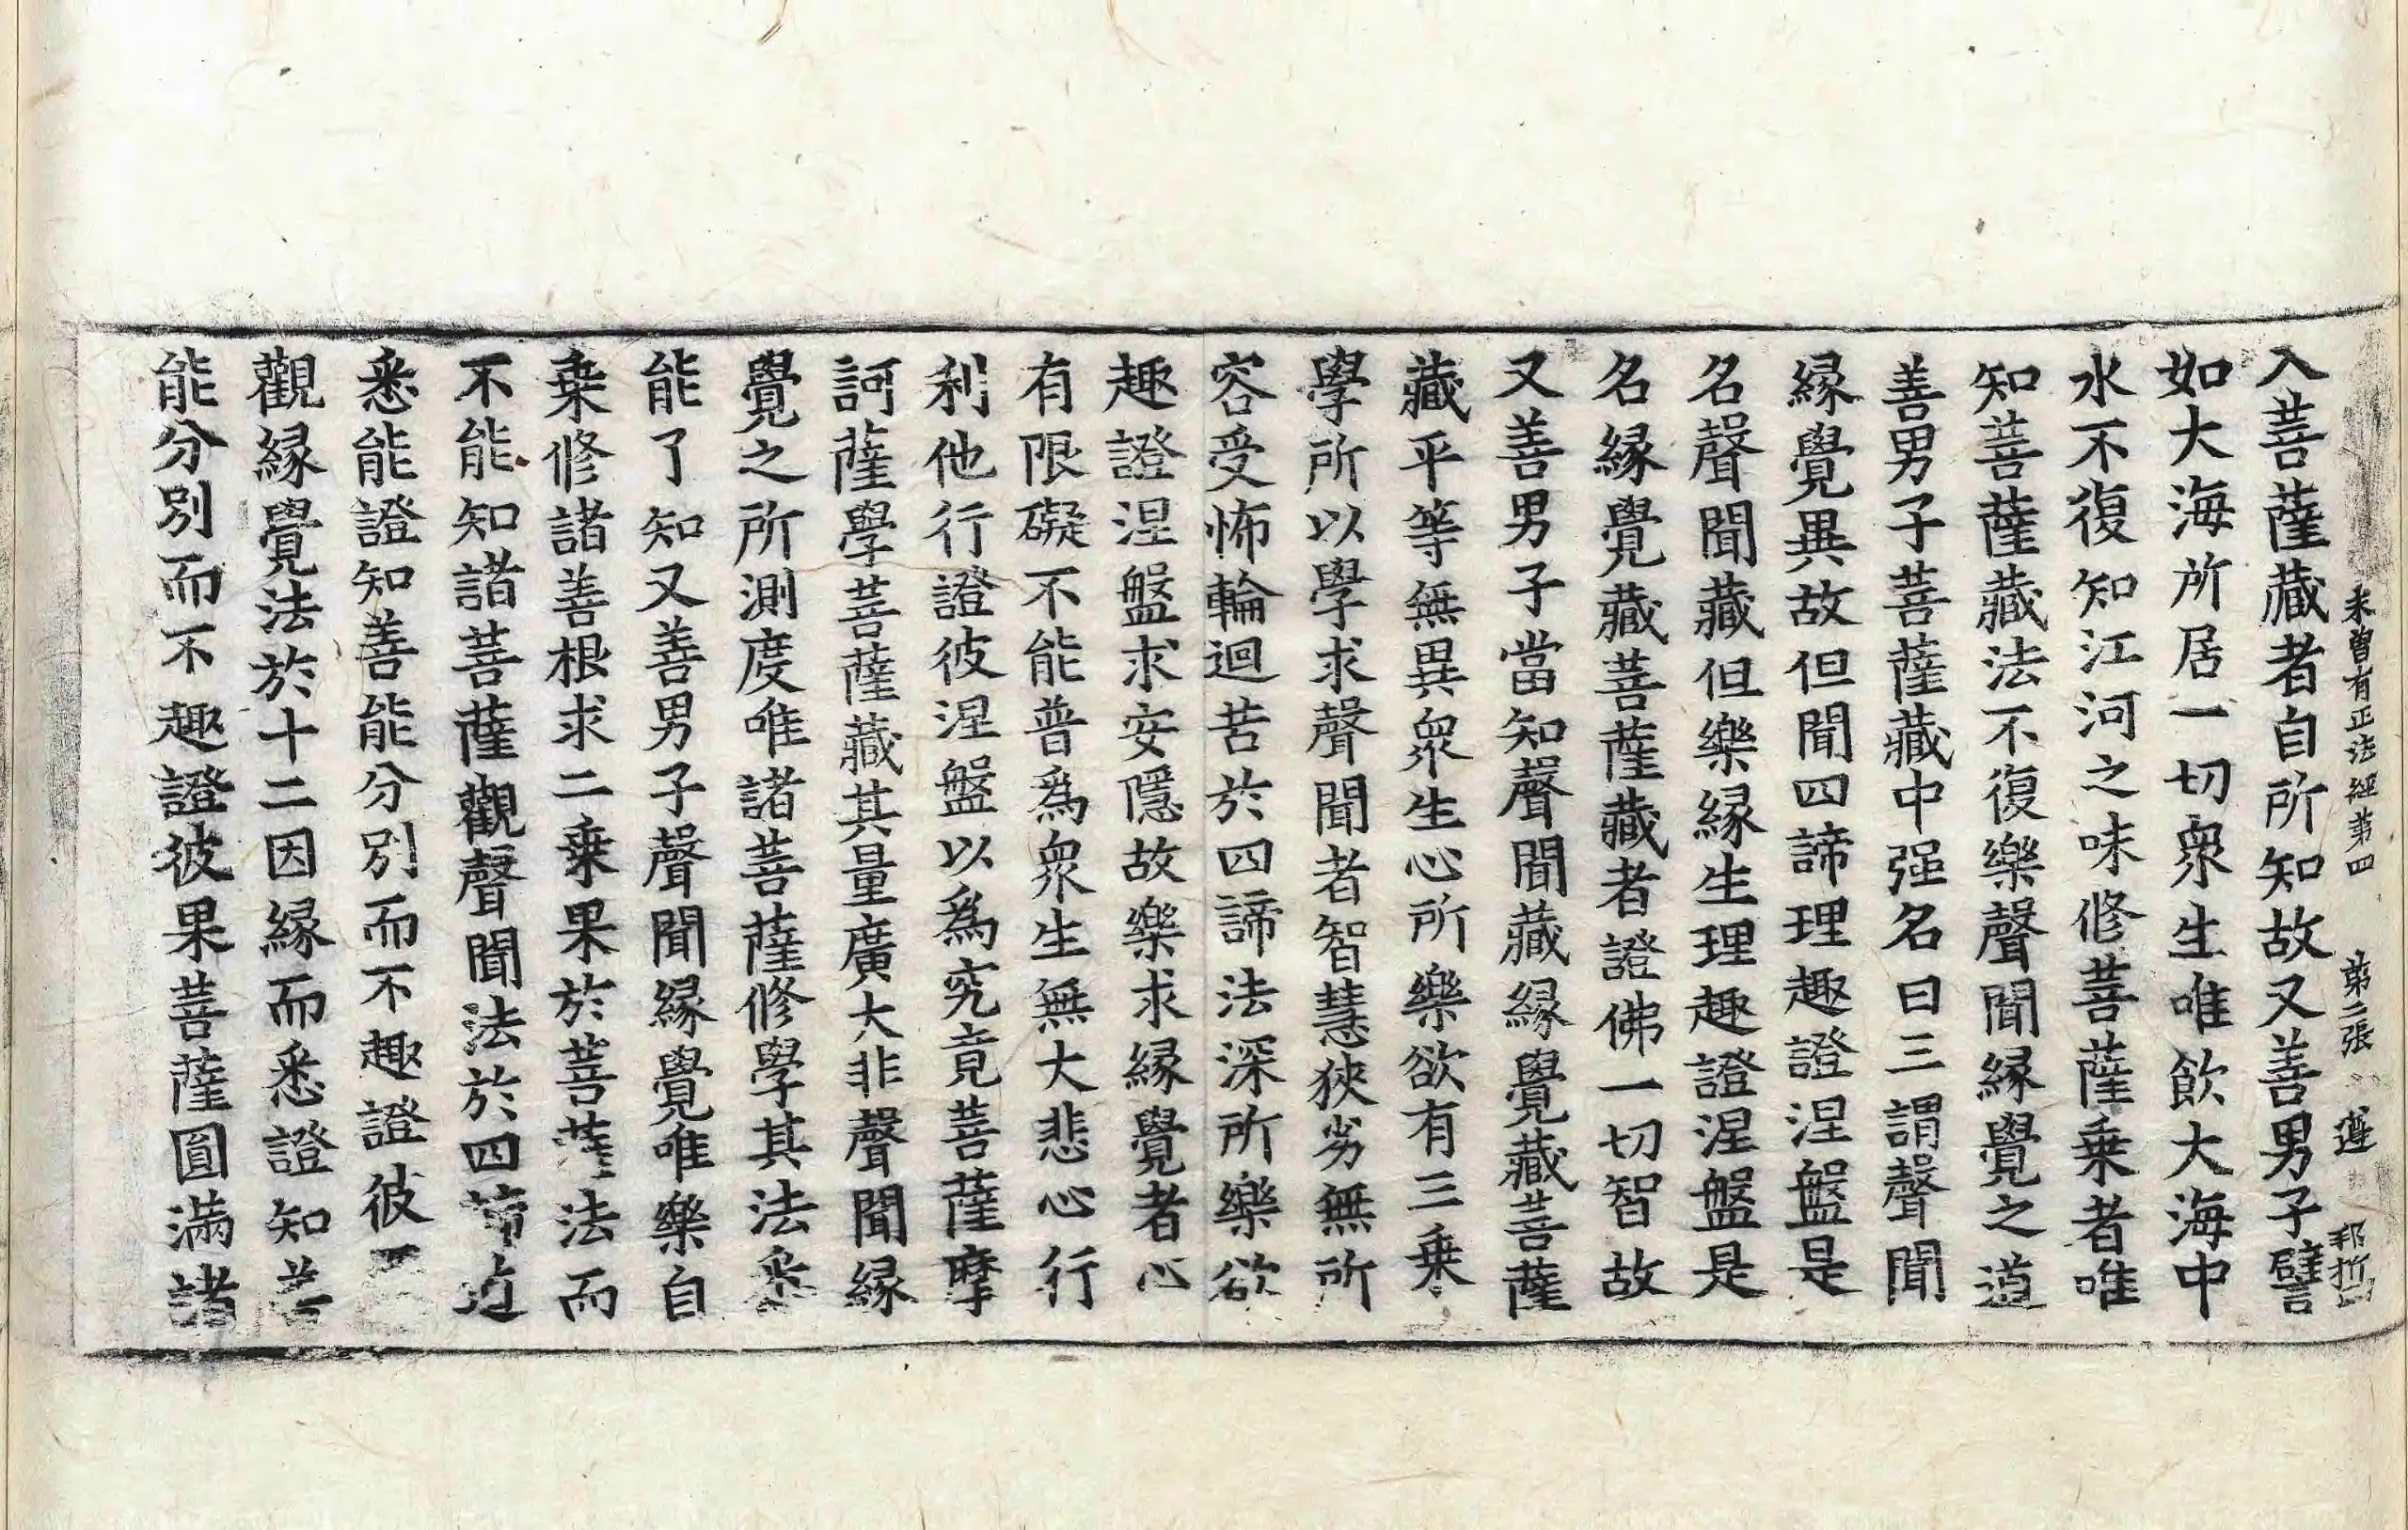 未曾有正法經第四 第二張 遵
入菩薩藏者自所知故又善男子譬
如大海所居一切衆生唯飲大海中
水不復知江河之味修菩薩乗者唯
知菩薩藏法不復樂聲聞縁覺之道
善男子菩薩藏中强名曰三謂聲聞
縁覺異故但聞四諦理趣證涅盤是
名聲聞藏但樂縁生理趣證涅盤是
名縁覺藏菩薩藏者證佛一切智故
又善男子當知聲聞藏縁覺藏菩薩
藏平等無異衆生心所樂欲有三乗
學所以學求聲聞者智慧狹劣無所
容受怖輪迴苦於四諦法深所樂欲
趣證涅盤求安隱故樂求縁覺者心
有限礙不能普爲衆生無大悲心行
利他行證彼涅盤以爲究竟菩薩摩
訶薩學菩薩藏其量廣大非聲聞縁
覺之所測度唯諸菩薩修學其法悉
能了知又善男子聲聞縁覺唯樂自
乗修諸善根求二乗果於菩薩法而
不能知諸菩薩觀聲聞法於四諦
悉能證知善能分別而不趣證彼
觀縁覺法於十二因縁而悉證知善
能分別而不趣證彼果菩薩圓滿諸